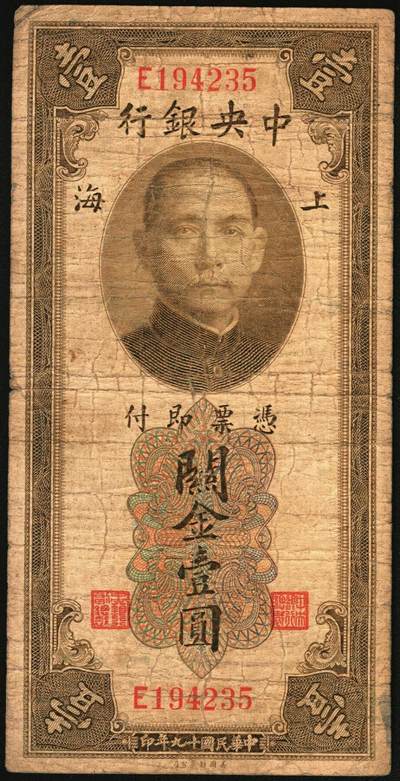 壹 壹
E194235
中央銀行
上海
憑票即付
關金壹圓
E194235
壹 壹
中華民國十九年印